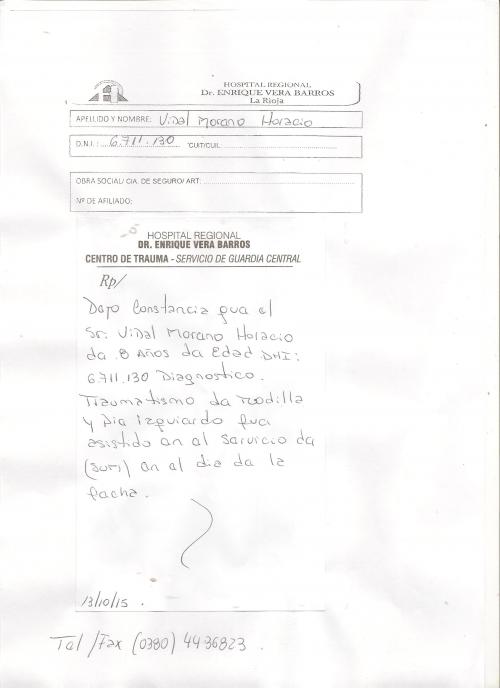 HOSPITAL REGIONAL
Dr. ENRIQUE VERA BARROS
La Rioja
APELLIDO Y NOMBRE: Vidal Morano Horacio
D.N.I.: 6.711.130 CUIT/CUIL:
OBRA SOCIAL/ CIA. DE SEGURO/ ART:
Nº DE AFILIADO:
HOSPITAL REGIONAL
DR. ENRIQUE VERA BARROS
CENTRO DE TRAUMA - SERVICIO DE GUARDIA CENTRAL
Rp/
Dejo Constancia que el
Sr: Vidal Morano Horacio
de 8 Años de Edad DNI:
6.711.130 Diagnostico.
Traumatismo de rodilla
y Pie izquierdo fue
asistido en el servicio de
(sum) en el dia de la
fecha.
13/10/15.
Tel/Fax (0380) 4436823.